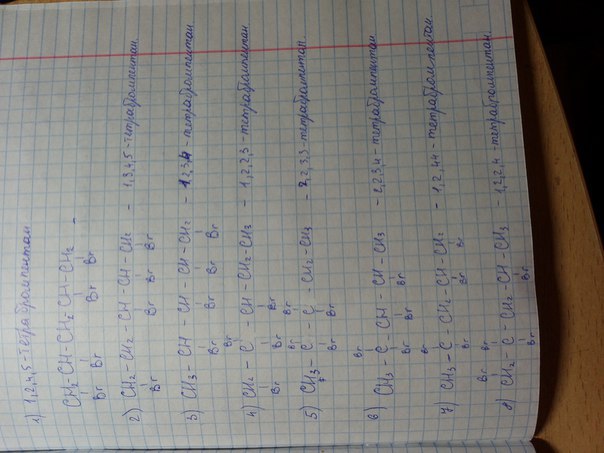 1) 1,2,4,5-тетрабромпентан
CH2-CH-CH2-CH-CH2 -
Br Br Br Br
2) CH2-CH2-CH-CH-CH2 - 1,3,4,5-тетрабромпентан
Br Br Br Br
3) CH3-CH-CH-CH-CH2 - 1,2,3,4-тетрабромпентан
Br Br Br Br
Br
4) CH2-C-CH-CH2-CH3 - 1,2,2,3-тетрабромпентан
Br Br Br
Br Br
5) CH3-C-C-CH2-CH3 - 2,2,3,3-тетрабромпентан
Br Br
Br
6) CH3-C-CH-CH-CH3 - 2,2,3,4-тетрабромпентан
Br Br Br
Br
7) CH3-C-CH2-CH-CH2 - 1,2,4,4-тетрабромпентан
Br Br Br
Br Br
8) CH2-C-CH2-CH-CH3 - 1,2,2,4-тетрабромпентан
Br Br